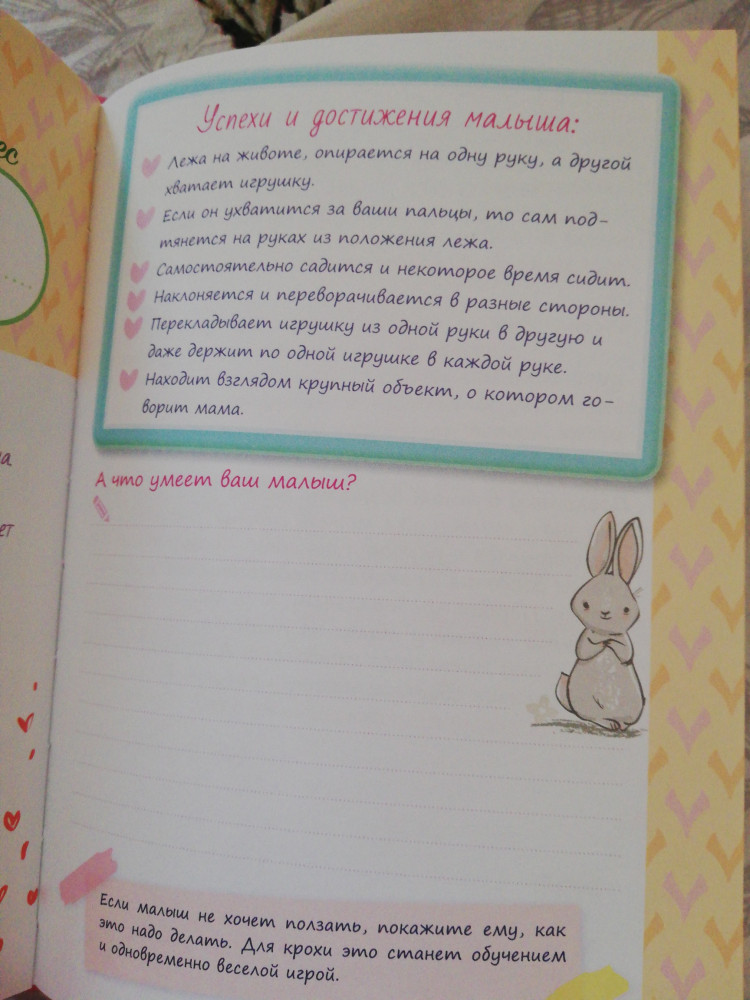 Успехи и достижения малыша:
Лежа на животе, опирается на одну руку, а другой
хватает игрушку.
Если он ухватится за ваши пальцы, то сам под-
тянется на руках из положения лежа.
Самостоятельно садится и некоторое время сидит.
Наклоняется и переворачивается в разные стороны.
Перекладывает игрушку из одной руки в другую и
даже держит по одной игрушке в каждой руке.
Находит взглядом крупный объект, о котором го-
ворит мама.
А что умеет ваш малыш?
Если малыш не хочет ползать, покажите ему, как
это надо делать. Для крохи это станет обучением
и одновременно веселой игрой.